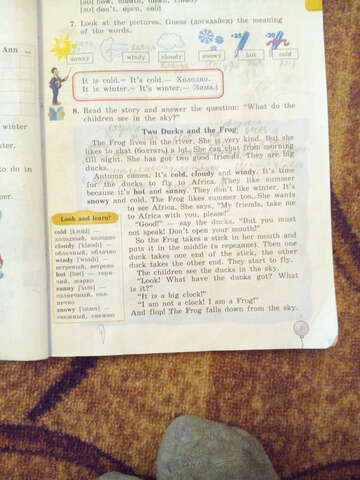 [əʊ] don't, open, cold
7. Look at the pictures. Guess (догадайся) the meaning
of the words.
+25
-25
sunny windy cloudy snowy hot cold
It is cold.= It's cold.— Холодно.
It is winter.= It's winter.— Зима.
8. Read the story and answer the question: "What do the
children see in the sky?"
Ann
winter
to do in
winter
Two Ducks and the Frog
The Frog lives in the river. She is very kind. But she
likes to chat (болтать) a lot. She can chat from morning
till night. She has got two good friends. They are big
ducks.
Autumn comes. It's cold, cloudy and windy. It's time
for the ducks to fly to Africa. They like summer
because it's hot and sunny. They don't like winter. It's
snowy and cold. The Frog likes summer too. She wants
to see Africa. She says, "My friends, take me
to Africa with you, please!"
"Good!" — say the ducks. "But you must
not speak! Don't open your mouth!"
So the Frog takes a stick in her mouth and
puts it in the middle (в середине). Then one
duck takes one end of the stick, the other
duck takes the other end. They start to fly.
The children see the ducks in the sky.
"Look! What have the ducks got? What
is it?"
"It is a big clock!"
"I am not a clock! I am a Frog!"
And flop! The Frog falls down from the sky.
Look and learn!
cold [kəʊld] —
холодный, холодно
cloudy ['klaʊdi] —
облачный, облачно
windy ['wɪndi] —
ветреный, ветрено
hot [hɒt] — горя-
чий, жарко
sunny ['sʌni] —
солнечный, сол-
нечно
snowy ['snəʊi] —
снежный, снежно